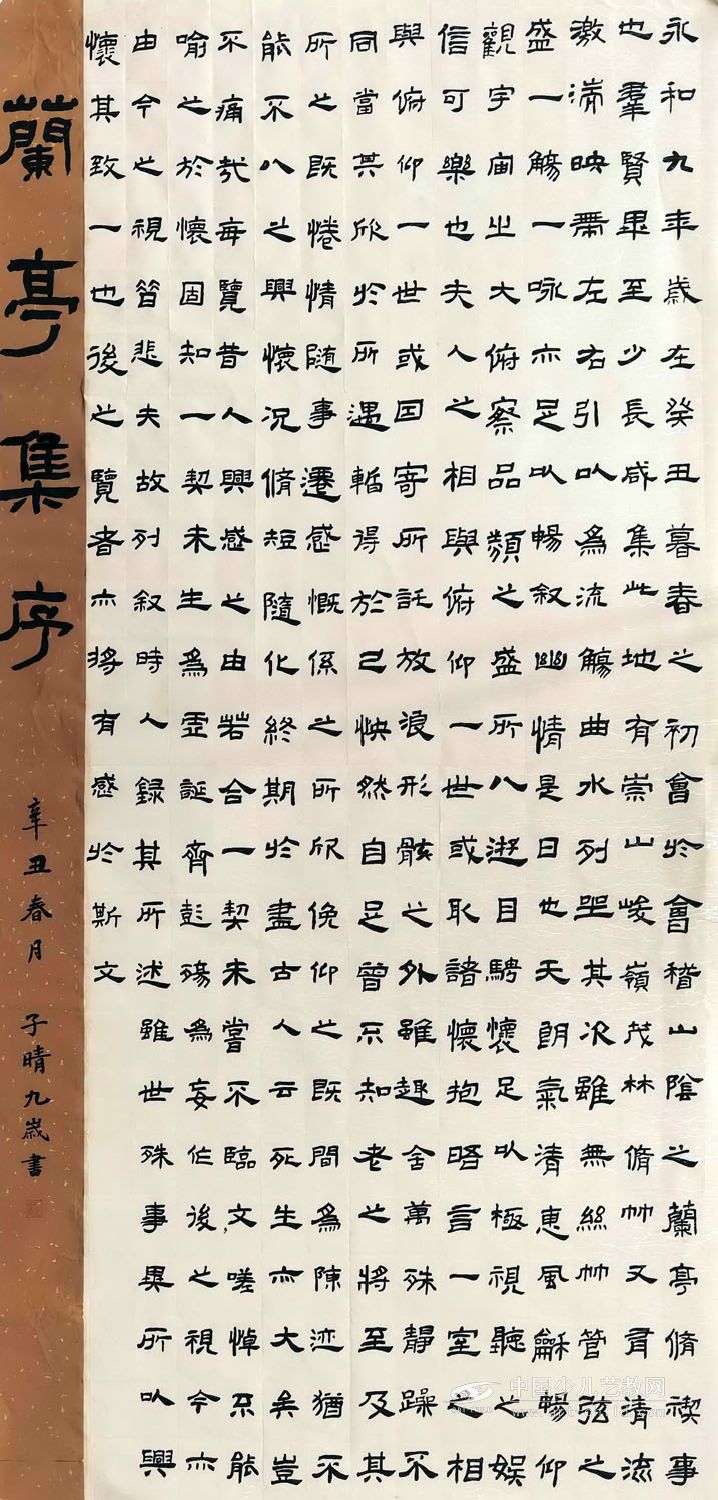 永和九年歲在癸丑暮春之初會於會稽山陰之蘭亭脩禊事
也羣賢畢至少長咸集此地有崇山峻嶺茂林脩竹又有清流
激湍映帶左右引以為流觴曲水列坐其次雖無絲竹管弦之
盛一觴一詠亦足以暢叙幽情是日也天朗氣清惠風龢暢仰
觀宇宙之大俯察品類之盛所以遊目騁懷足以極視聽之娛
信可樂也夫人之相與俯仰一世或取諸懷抱晤言一室之相
與俯仰一世或因寄所託放浪形骸之外雖趣舍萬殊靜躁不
同當其欣於所遇暫得於己怏然自足曾不知老之將至及其
所之既惓情随事遷感慨係之所欣俛仰之既間為陳迹猶不
能不以之興懷況脩短隨化終期於盡古人云死生亦大矣豈
不痛哉每覽昔人興感之由若合一契未嘗不臨文嗟悼不能
喻之於懷固知一契未生為虛誕齊彭殤為妄作後之視今亦
由今之視昔悲夫故列叙時人錄其所述雖世殊事異所以興
懷其致一也後之覽者亦將有感於斯文
蘭亭集序
辛丑春月 子晴九歲書
中国少儿艺教网